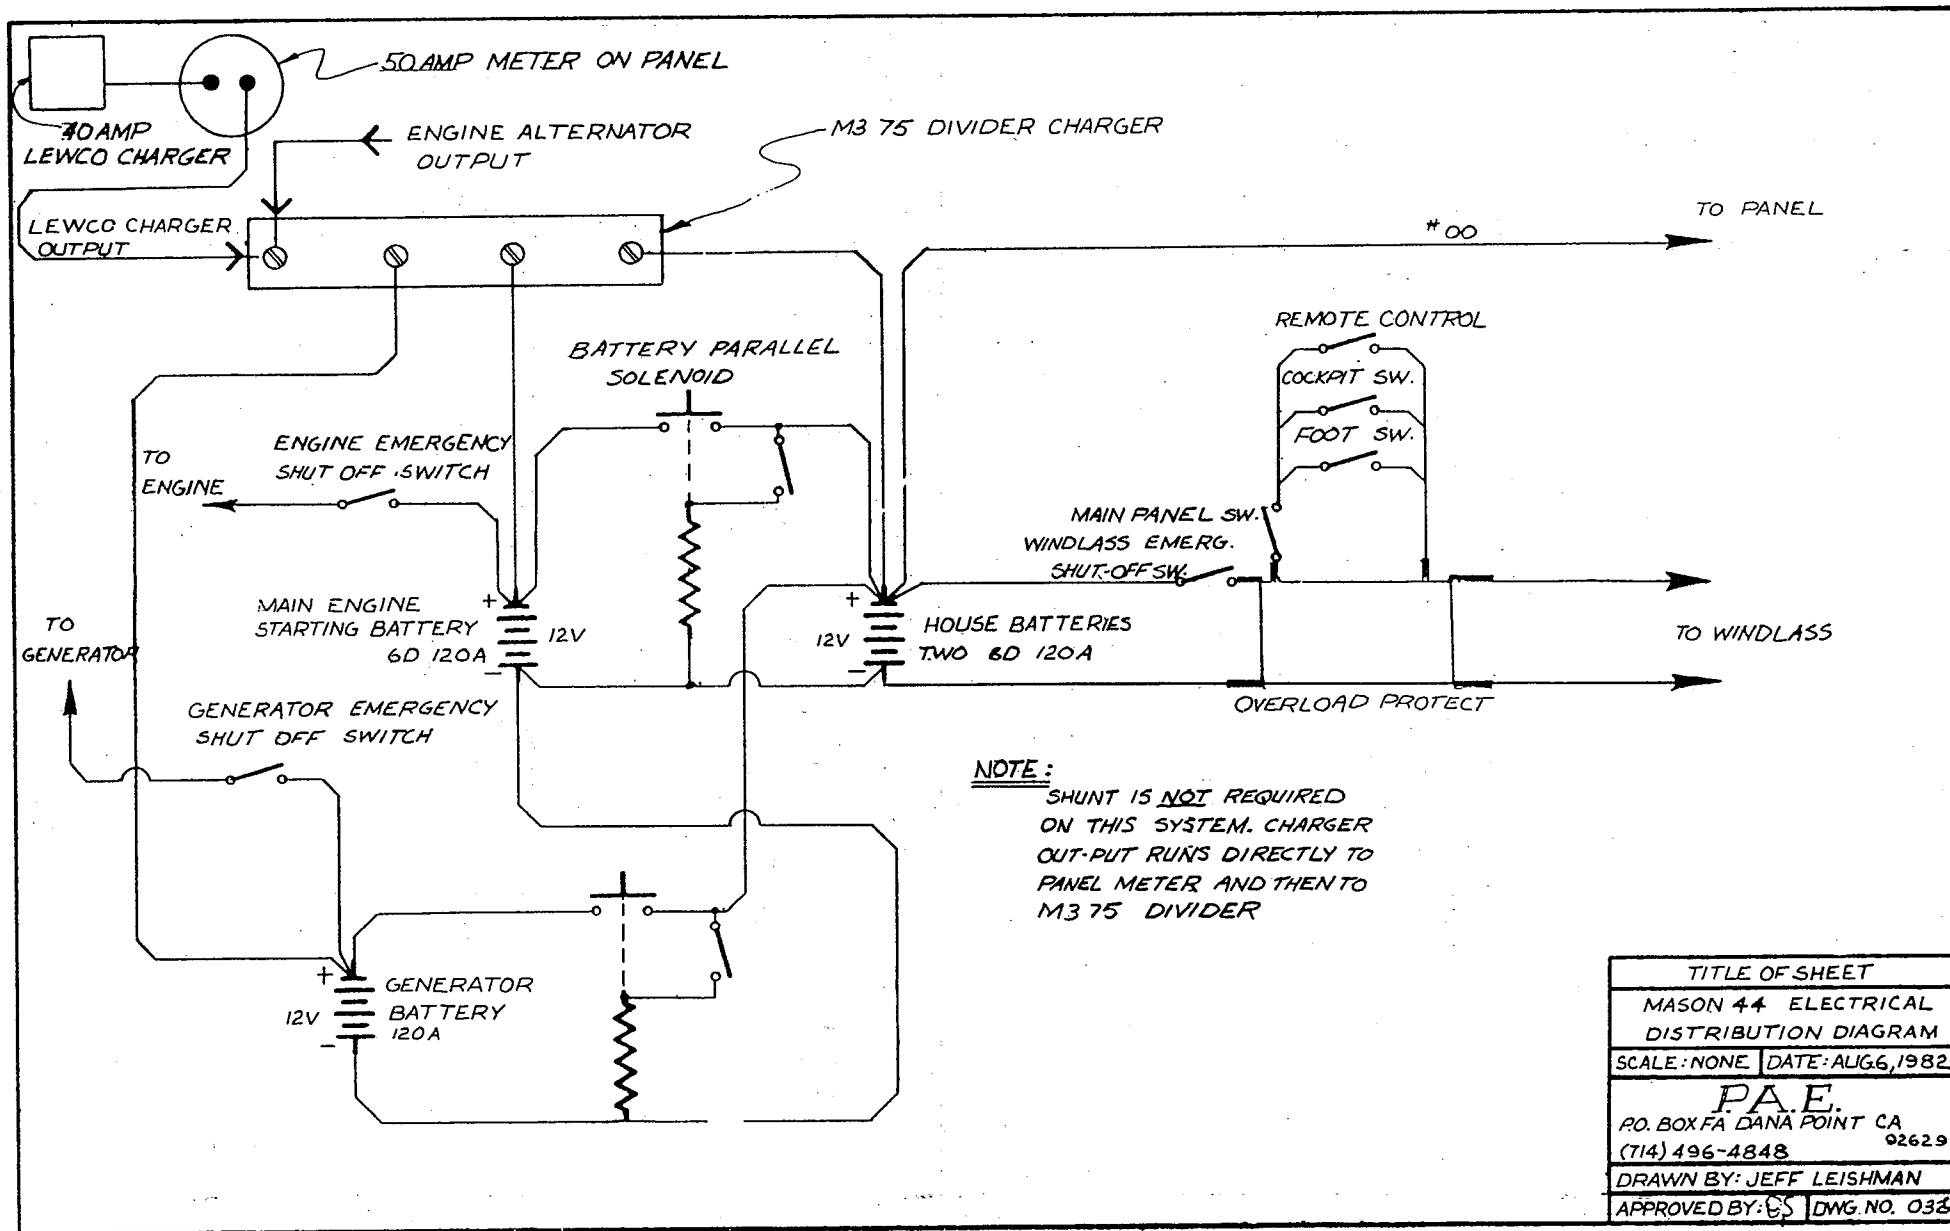 50 AMP METER ON PANEL
40 AMP
LEWCO CHARGER
ENGINE ALTERNATOR
OUTPUT
M3 75 DIVIDER CHARGER
LEWCO CHARGER
OUTPUT
TO PANEL
#00
REMOTE CONTROL
COCKPIT SW.
FOOT SW.
BATTERY PARALLEL
SOLENOID
ENGINE EMERGENCY
SHUT OFF SWITCH
TO
ENGINE
MAIN PANEL SW.
WINDLASS EMERG.
SHUT-OFF SW.
MAIN ENGINE
STARTING BATTERY
6D 120A
+
12V
−
+
12V
−
HOUSE BATTERIES
TWO 6D 120A
TO WINDLASS
OVERLOAD PROTECT
TO
GENERATOR
GENERATOR EMERGENCY
SHUT OFF SWITCH
NOTE:
SHUNT IS NOT REQUIRED
ON THIS SYSTEM. CHARGER
OUT-PUT RUNS DIRECTLY TO
PANEL METER AND THEN TO
M3 75 DIVIDER
+
12V
−
GENERATOR
BATTERY
120A
TITLE OF SHEET
MASON 44 ELECTRICAL
DISTRIBUTION DIAGRAM
SCALE: NONE DATE: AUG 6, 1982
P.A.E.
P.O. BOX FA DANA POINT CA
92629
(714) 496-4848
DRAWN BY: JEFF LEISHMAN
APPROVED BY: DWG. NO.